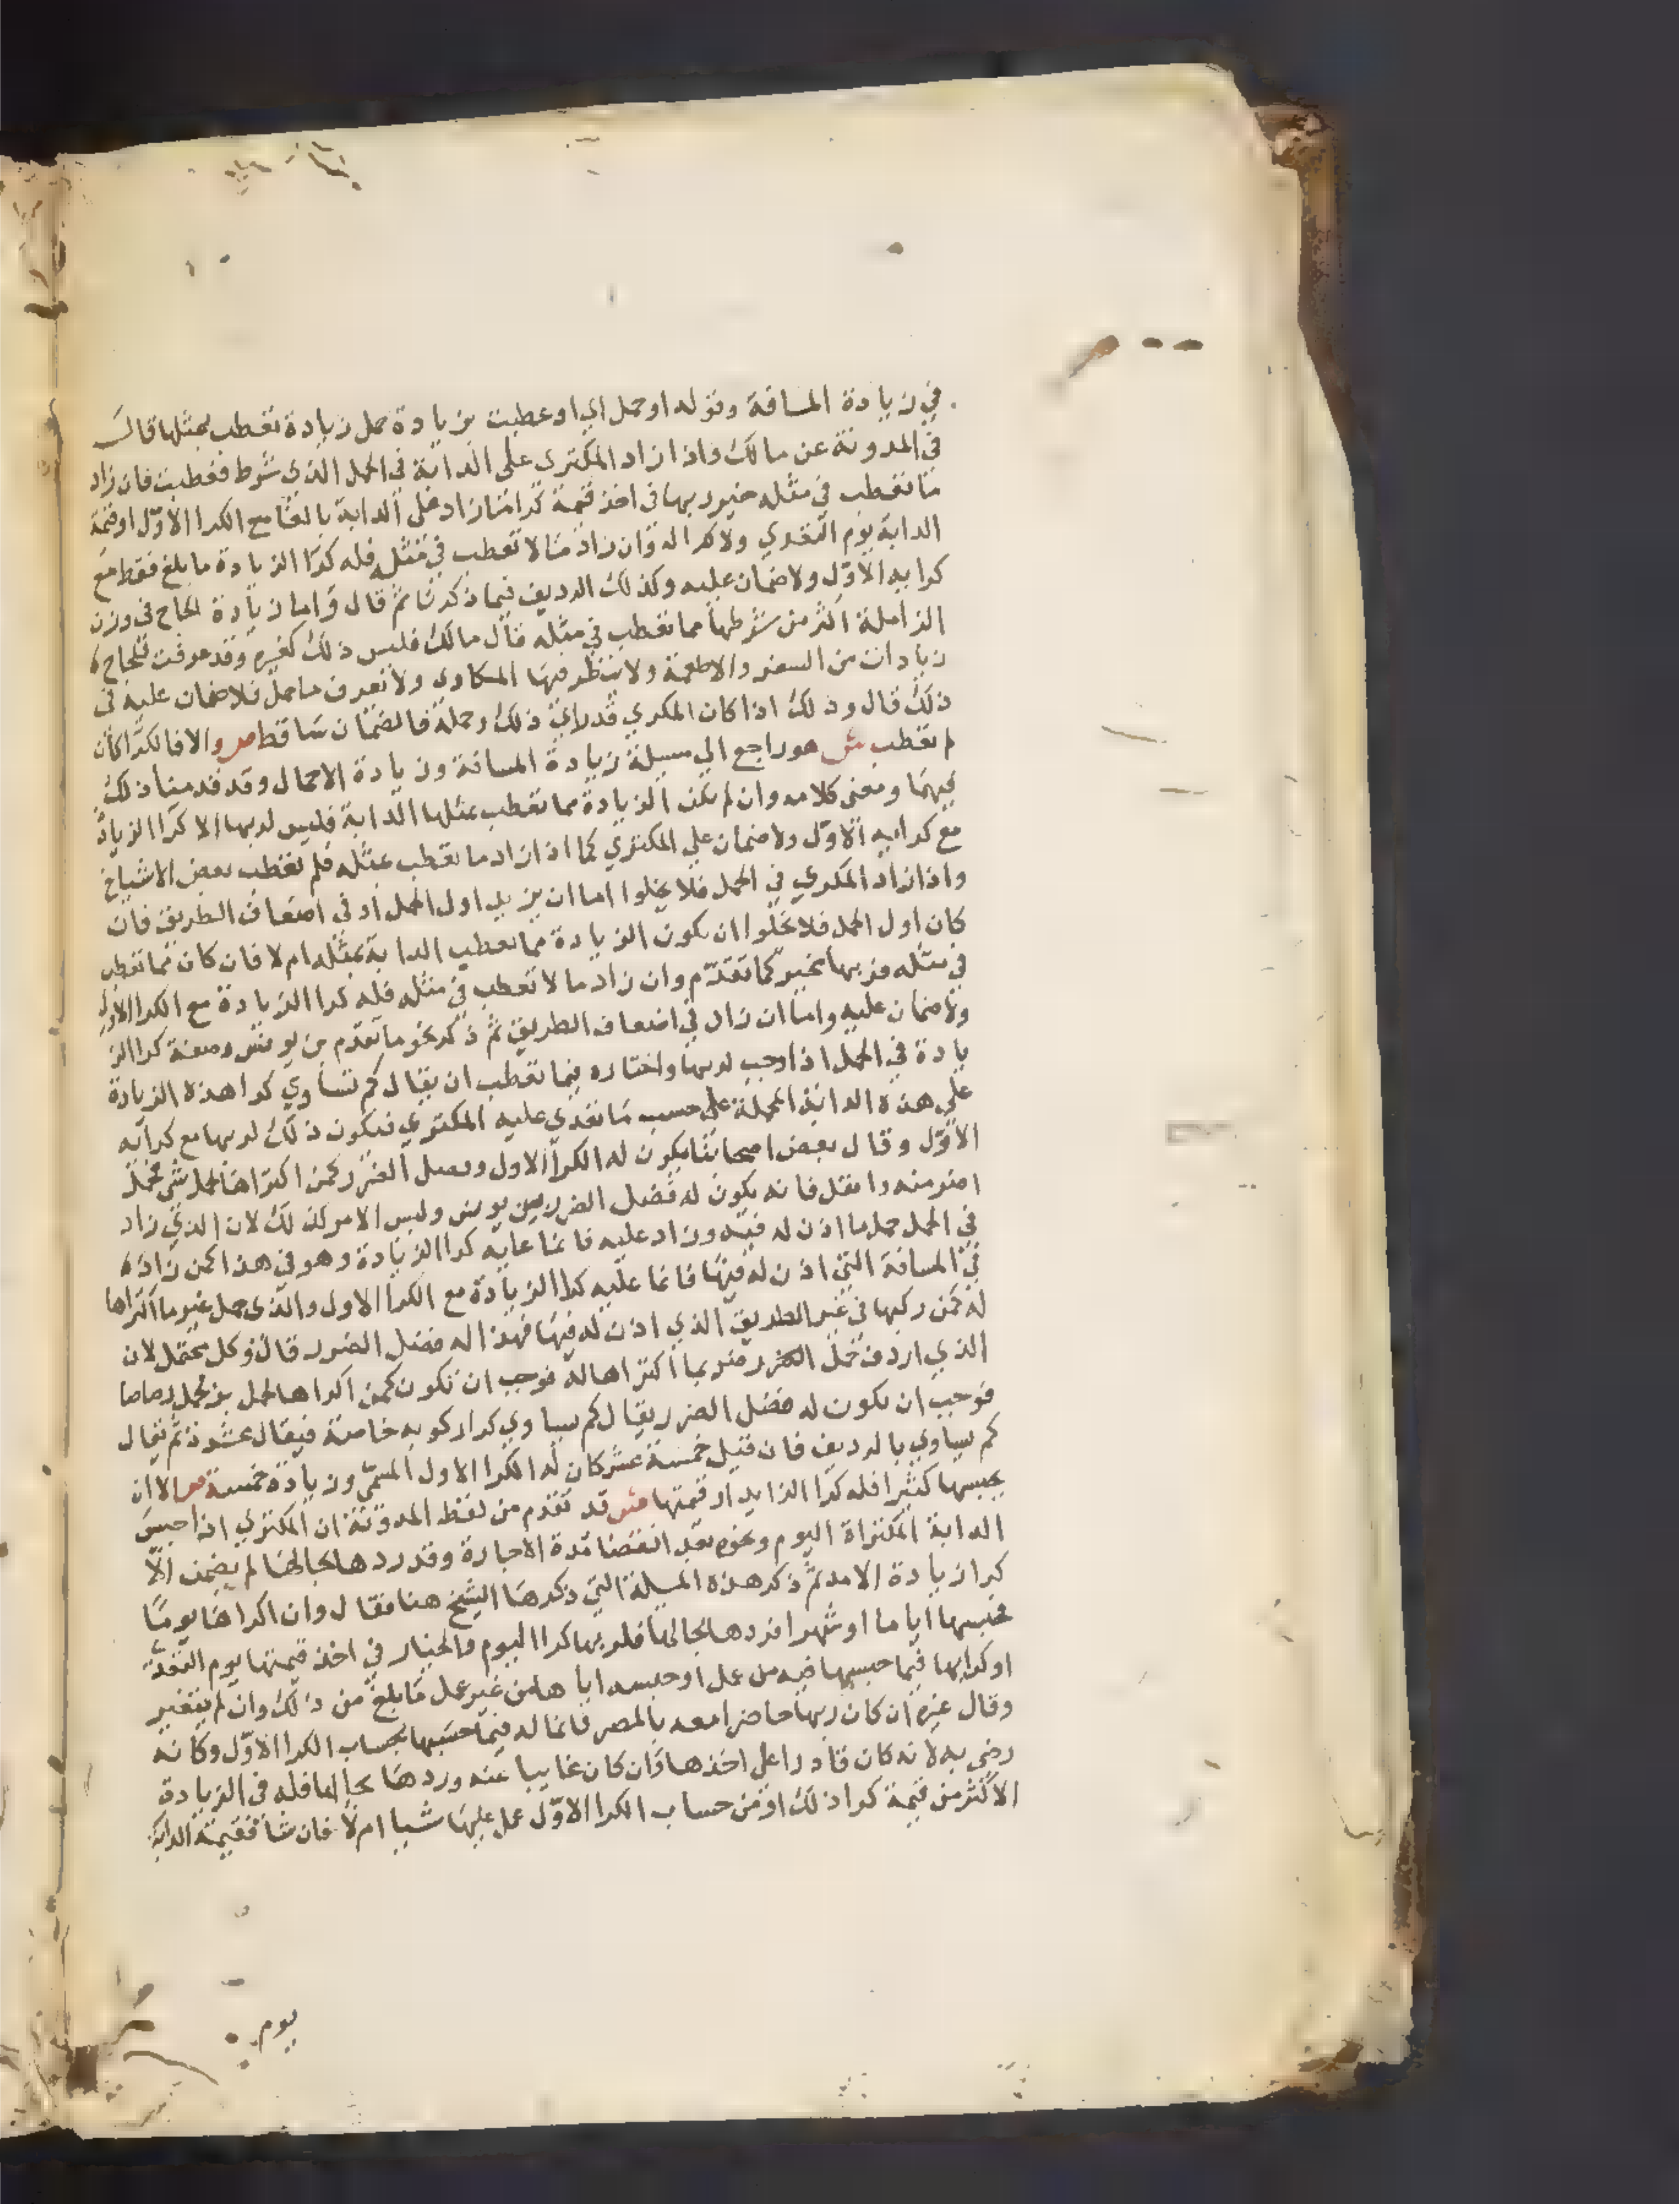 في زيادة المسافة وقوله او حمل اي او عطبت بزيادة حمل زيادة تعطب بمثلها قال
في المدونة عن مالك واذا زاد المكتري على الدابة في الحمل الذي شرط فعطبت فان زاد
ما تعطب في مثله خير ربها في اخذ قيمة كرا ما زاد على الدابة بالغا مع الكرا الاول او قيمة
الدابة يوم التعدي ولا كرا له وان زاد ما لا تعطب في مثله فله كرا الزيادة ما بلغ فقط مع
كرايه الاول ولا ضمان عليه وكذلك الرديف فيما ذكرنا ثم قال واما زيادة الحاج في وزن
الزاملة اكثر من شرطها مما تعطب في مثله قال مالك فليس ذلك كغيره وقد عرفت للحاج
زيادات من السفر والاطعمة ولا ينظر فيها المكاري ولا تعرف ما حمل فلا ضمان عليه في
ذلك قال وذلك اذا كان المكري قد راي ذلك وحمله فالضمان ساقط ص والا فالكرا كان
لم تعطب ش هو راجع الي مسيلة زيادة المسافة وزيادة الاحمال وقد قدمنا ذلك
فيهما ومعنى كلامه وان لم تكن الزيادة مما تعطب بمثلها الدابة فليس لربها الا كرا الزيادة
مع كرايه الاول ولا ضمان علي المكتري كما اذا زاد ما تعطب بمثله فلم تعطب بعض الاشياخ
واذا زاد المكري في الحمل فلا يخلوا اما ان يزيد اول الحمل او في اضعاف الطريق فان
كان اول الحمل فلا يخلوا ان يكون الزيادة مما تعطب الدابة بمثله ام لا فان كان مما تعطب
في مثله فربها مخير كما تقدم وان زاد ما لا تعطب في مثله فله كرا الزيادة مع الكرا الاول
ولا ضمان عليه واما ان زاد في اضعاف الطريق ثم ذكر نحو ما تقدم بن يونس وصفة كرا الز
يادة في الحمل اذا وجب لربها واختاره فيما تعطب ان يقال كم تساوي كرا هذه الزيادة
علي هذه الدابة المحملة علي حسب ما تعدي عليه المكتري فيكون ذلك لربها مع كرايه
الاول وقال بعض اصحابنا يكون له الكرا الاول وفضل الضرر كمن اكتراها لحمل شي فحمل
اضر منه واثقل فانه يكون له فضل الضرر بن يونس وليس الامر كذلك لان الذي زاد
في الحمل حمل ما اذن له فيه وزاد عليه فانما عليه كرا الزيادة وهو في هذا كمن زاد
في المسافة التي اذن له فيها فانما عليه كرا الزيادة مع الكرا الاول والذي حمل غير ما اكتراها
له كمن ركبها في غير الطريق الذي اذن له فيها فهذا له فضل الضرر قال وكل محتمل لان
الذي اردف حمل اضر مما اكتراها له فوجب ان تكون كمن اكراها لحمل بز فحمل رصاصا
فوجب ان يكون له فضل الضرر يقال كم يساوي كرا ركوبه خاصة فيقال عشرة ثم يقال
كم يساوي بالرديف فان قيل خمسة عشر كان له الكرا الاول المسمي وزيادة خمسة ص الا ان
يحبسها كثيرا فله كرا الزايد او قيمتها ش قد تقدم من لفظ المدونة ان المكتري اذا حبس
الدابة المكتراة اليوم ونحوه بعد انقضا مدة الاجارة وقد ردها بحالها لم يضمن الا
كرا زيادة الامد ثم ذكر هذه المسيلة التي ذكرها الشيخ هنا فقال وان اكراها يوما
فحبسها اياما او شهرا فردها بحالها فلربها كرا اليوم والخيار في اخذ قيمتها يوم التعد
او كرايها فيما حبسها فيه من عمل او حبسه اياها من غير عمل ما بلغ من ذلك وان لم يتغير
وقال غيره ان كان ربها حاضرا معه بالمصر فانما له فيما حبسها بحساب الكرا الاول وكانه
رضي به لانه كان قادرا على اخذها وان كان غايبا عنه وردها بحالها فله في الزيادة
الاكثر من قيمة كرا ذلك او من حساب الكرا الاول عمل عليها شيا ام لا فان شا فقيمة الدابة
يوم